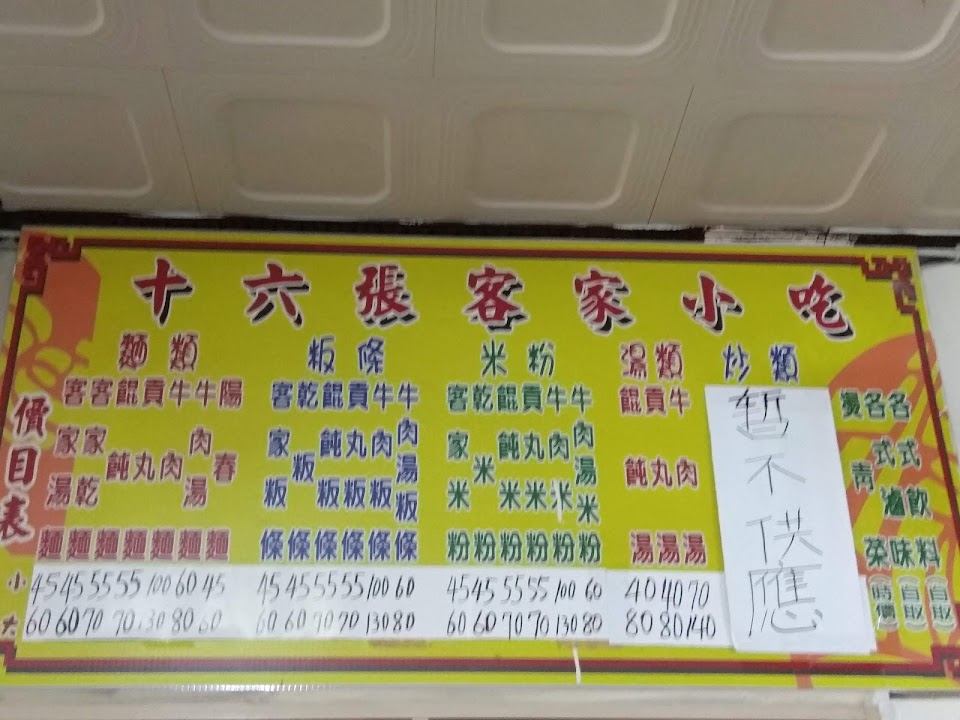 十六張客家小吃
價目表
麵類
客家湯麵
客家乾麵
餛飩麵
貢丸麵
牛肉麵
牛肉湯麵
陽春麵
小 45 45 55 55 100 60 45
大 60 60 70 70 130 80 60
粄條
客家粄條
乾粄條
餛飩粄條
貢丸粄條
牛肉粄條
牛肉湯粄條
45 45 55 55 100 60
60 60 70 70 130 80
米粉
客家米粉
乾米粉
餛飩米粉
貢丸米粉
牛肉米粉
牛肉湯米粉
45 45 55 55 100 60
60 60 70 70 130 80
湯類
餛飩湯
貢丸湯
牛肉湯
40 40 70
80 80 140
炒類
暫不供應
燙青菜(時價)
各式滷味(自取)
各式飲料(自取)